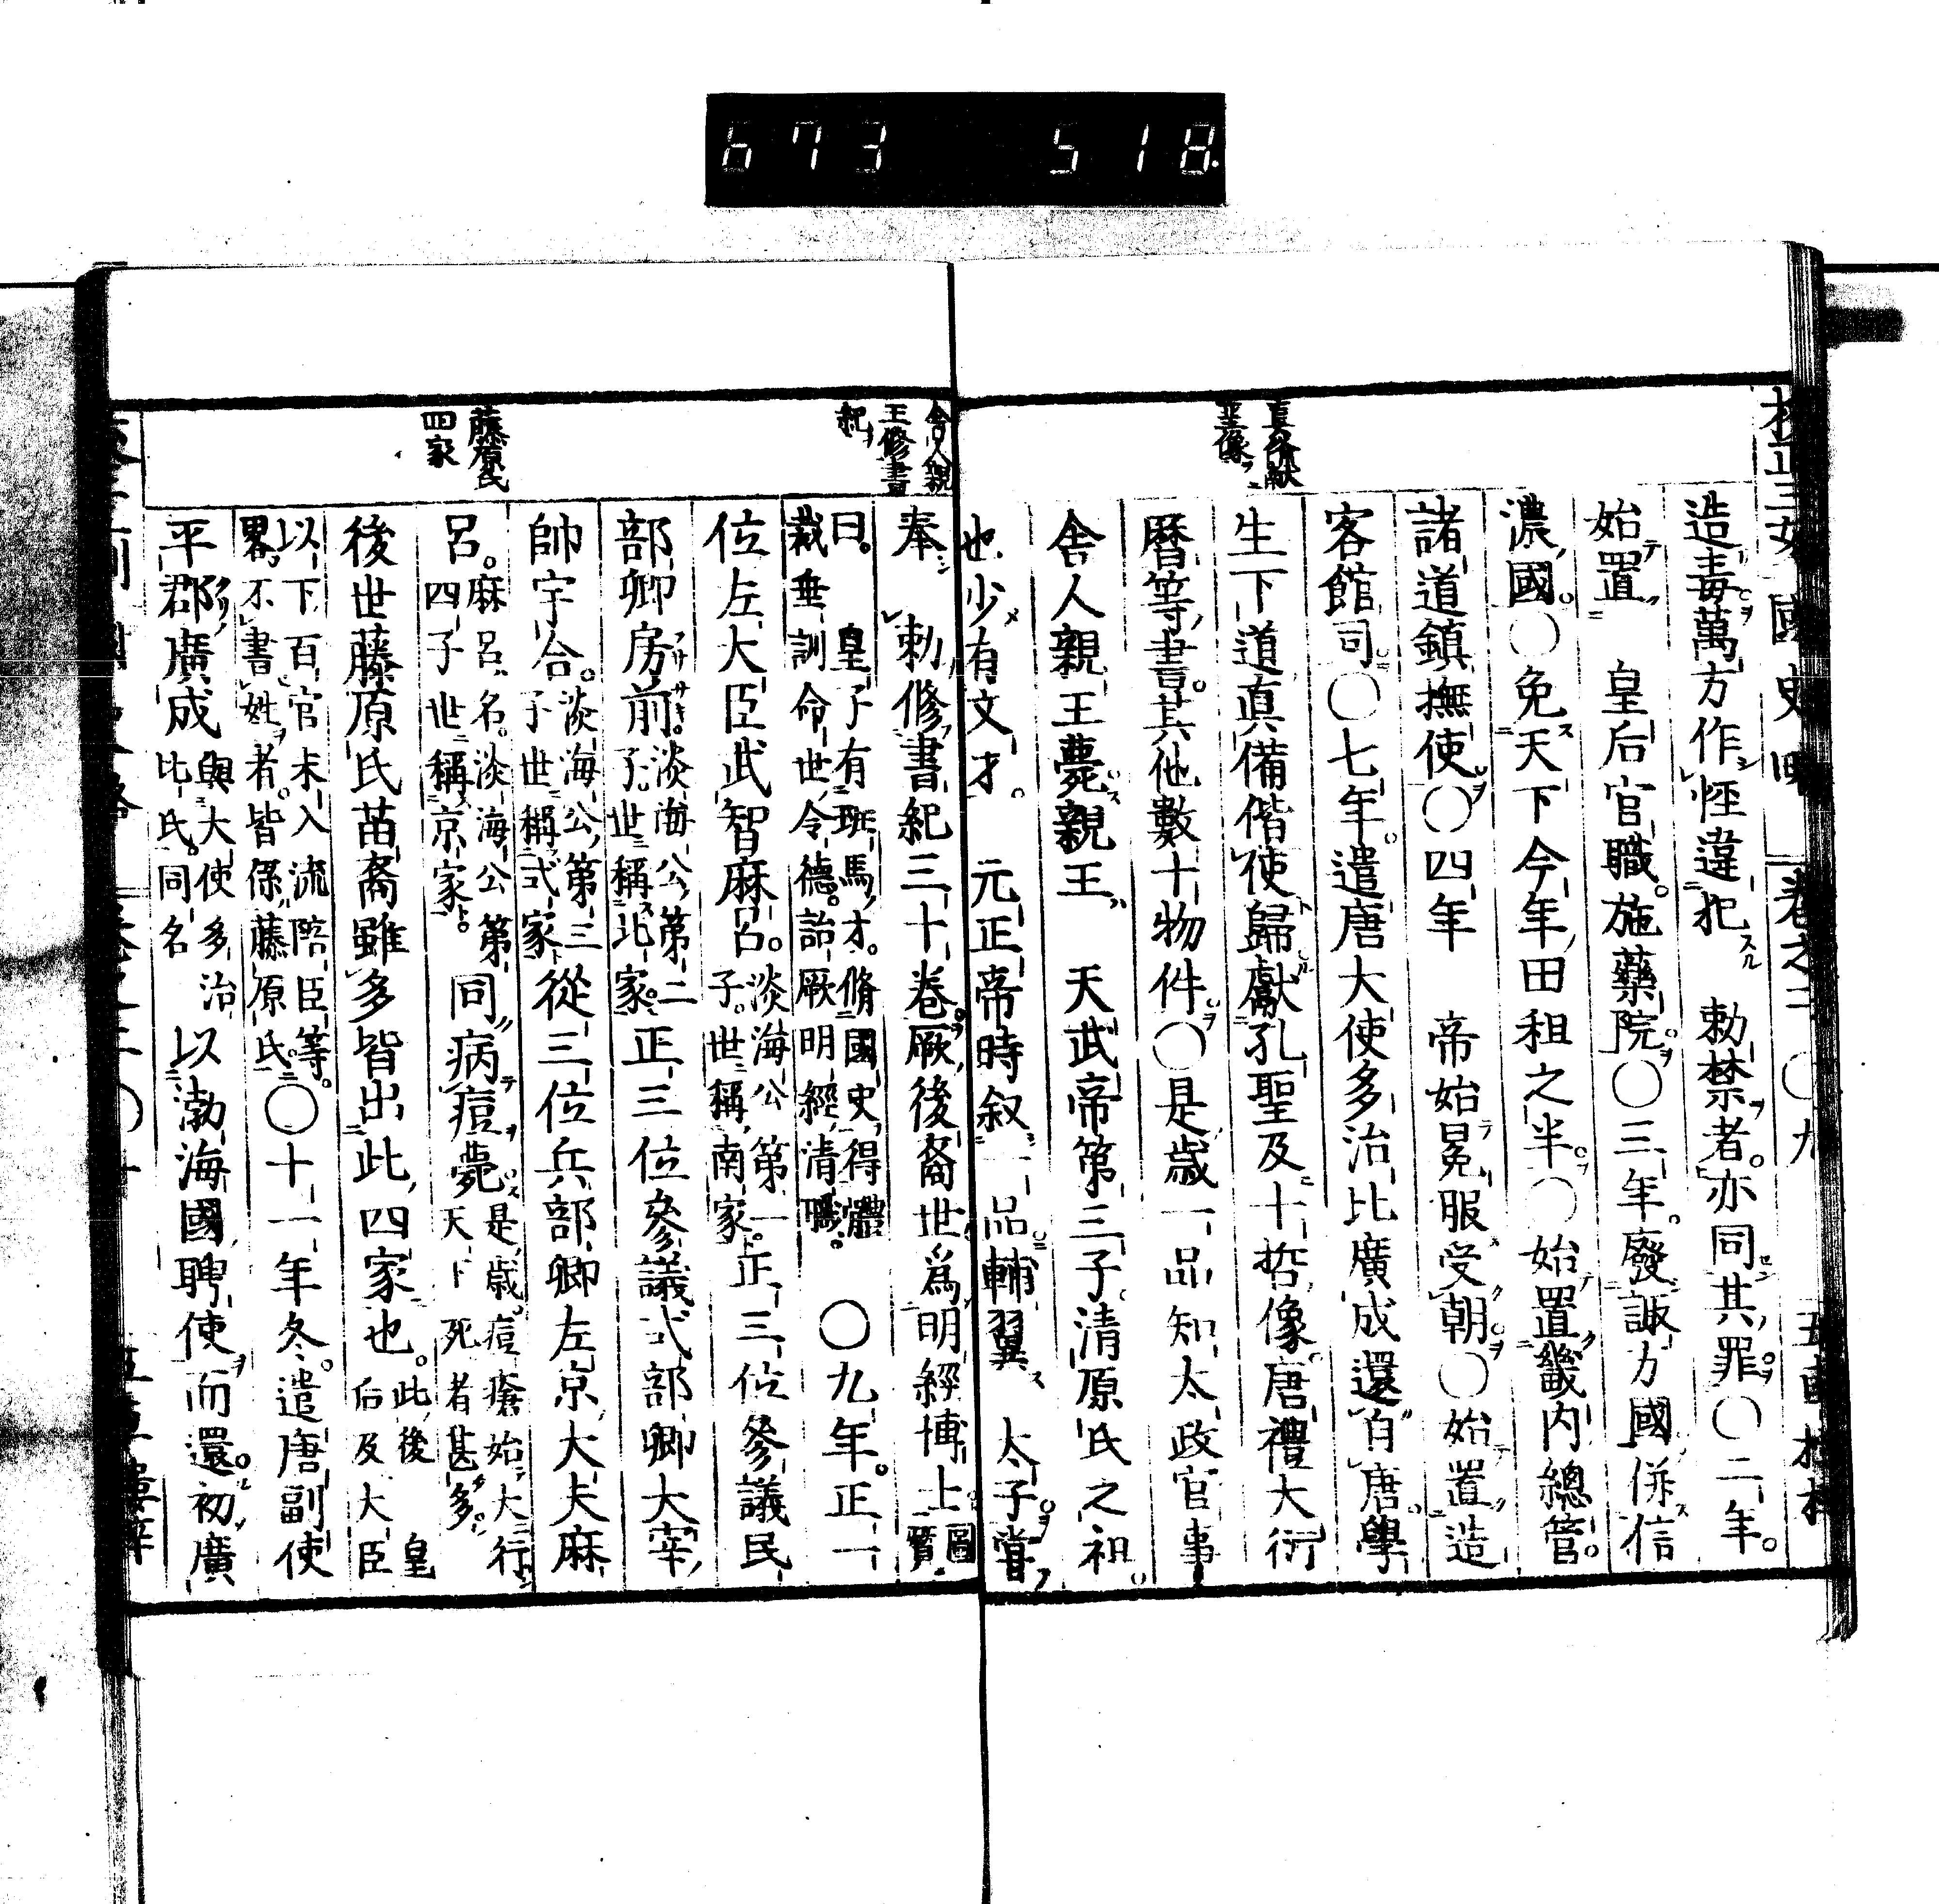 673 518
真備獻
聖像
造毒萬方作怪違犯 勅禁者亦同其罪○二年
始置 皇后官職施藥院○三年廢諏方國併信
濃國○免天下今年田租之半○始置畿内總管
諸道鎮撫使○四年 帝始冕服受朝○始置造
客館司○七年遣唐大使多治比廣成還自唐學
生下道真備偕使歸獻孔聖及十哲像唐禮大衍
曆等書其他數十物件○是歲一品知太政官事
舍人親王薨親王 天武帝第三子清原氏之祖
也少有文才 元正帝時叙一品輔翼 太子嘗
舍人親
王修書
紀
藤原氏
四家
奉 勅修書紀三十卷厥後裔世爲明經博士圖賛
曰 皇子有班馬才脩國史得體
裁垂訓命世令德詒厥明經清職 ○九年正一
位左大臣武智麻呂淡海公第一子世稱南家正三位參議民
部卿房前淡海公第二子世稱北家正三位參議式部卿大宰
帥宇合淡海公第三子世稱式家從三位兵部卿左京大夫麻
呂麻呂名淡海公第四子世稱京家同病痘薨是歲痘瘡始大行天下死者甚多
後世藤原氏苗裔雖多皆出此四家也此後 皇后及大臣
以下百官未入流陪臣等
畧不書姓者皆係藤原氏○十一年冬遣唐副使
平郡廣成與大使多治比氏同名以渤海國聘使而還初廣